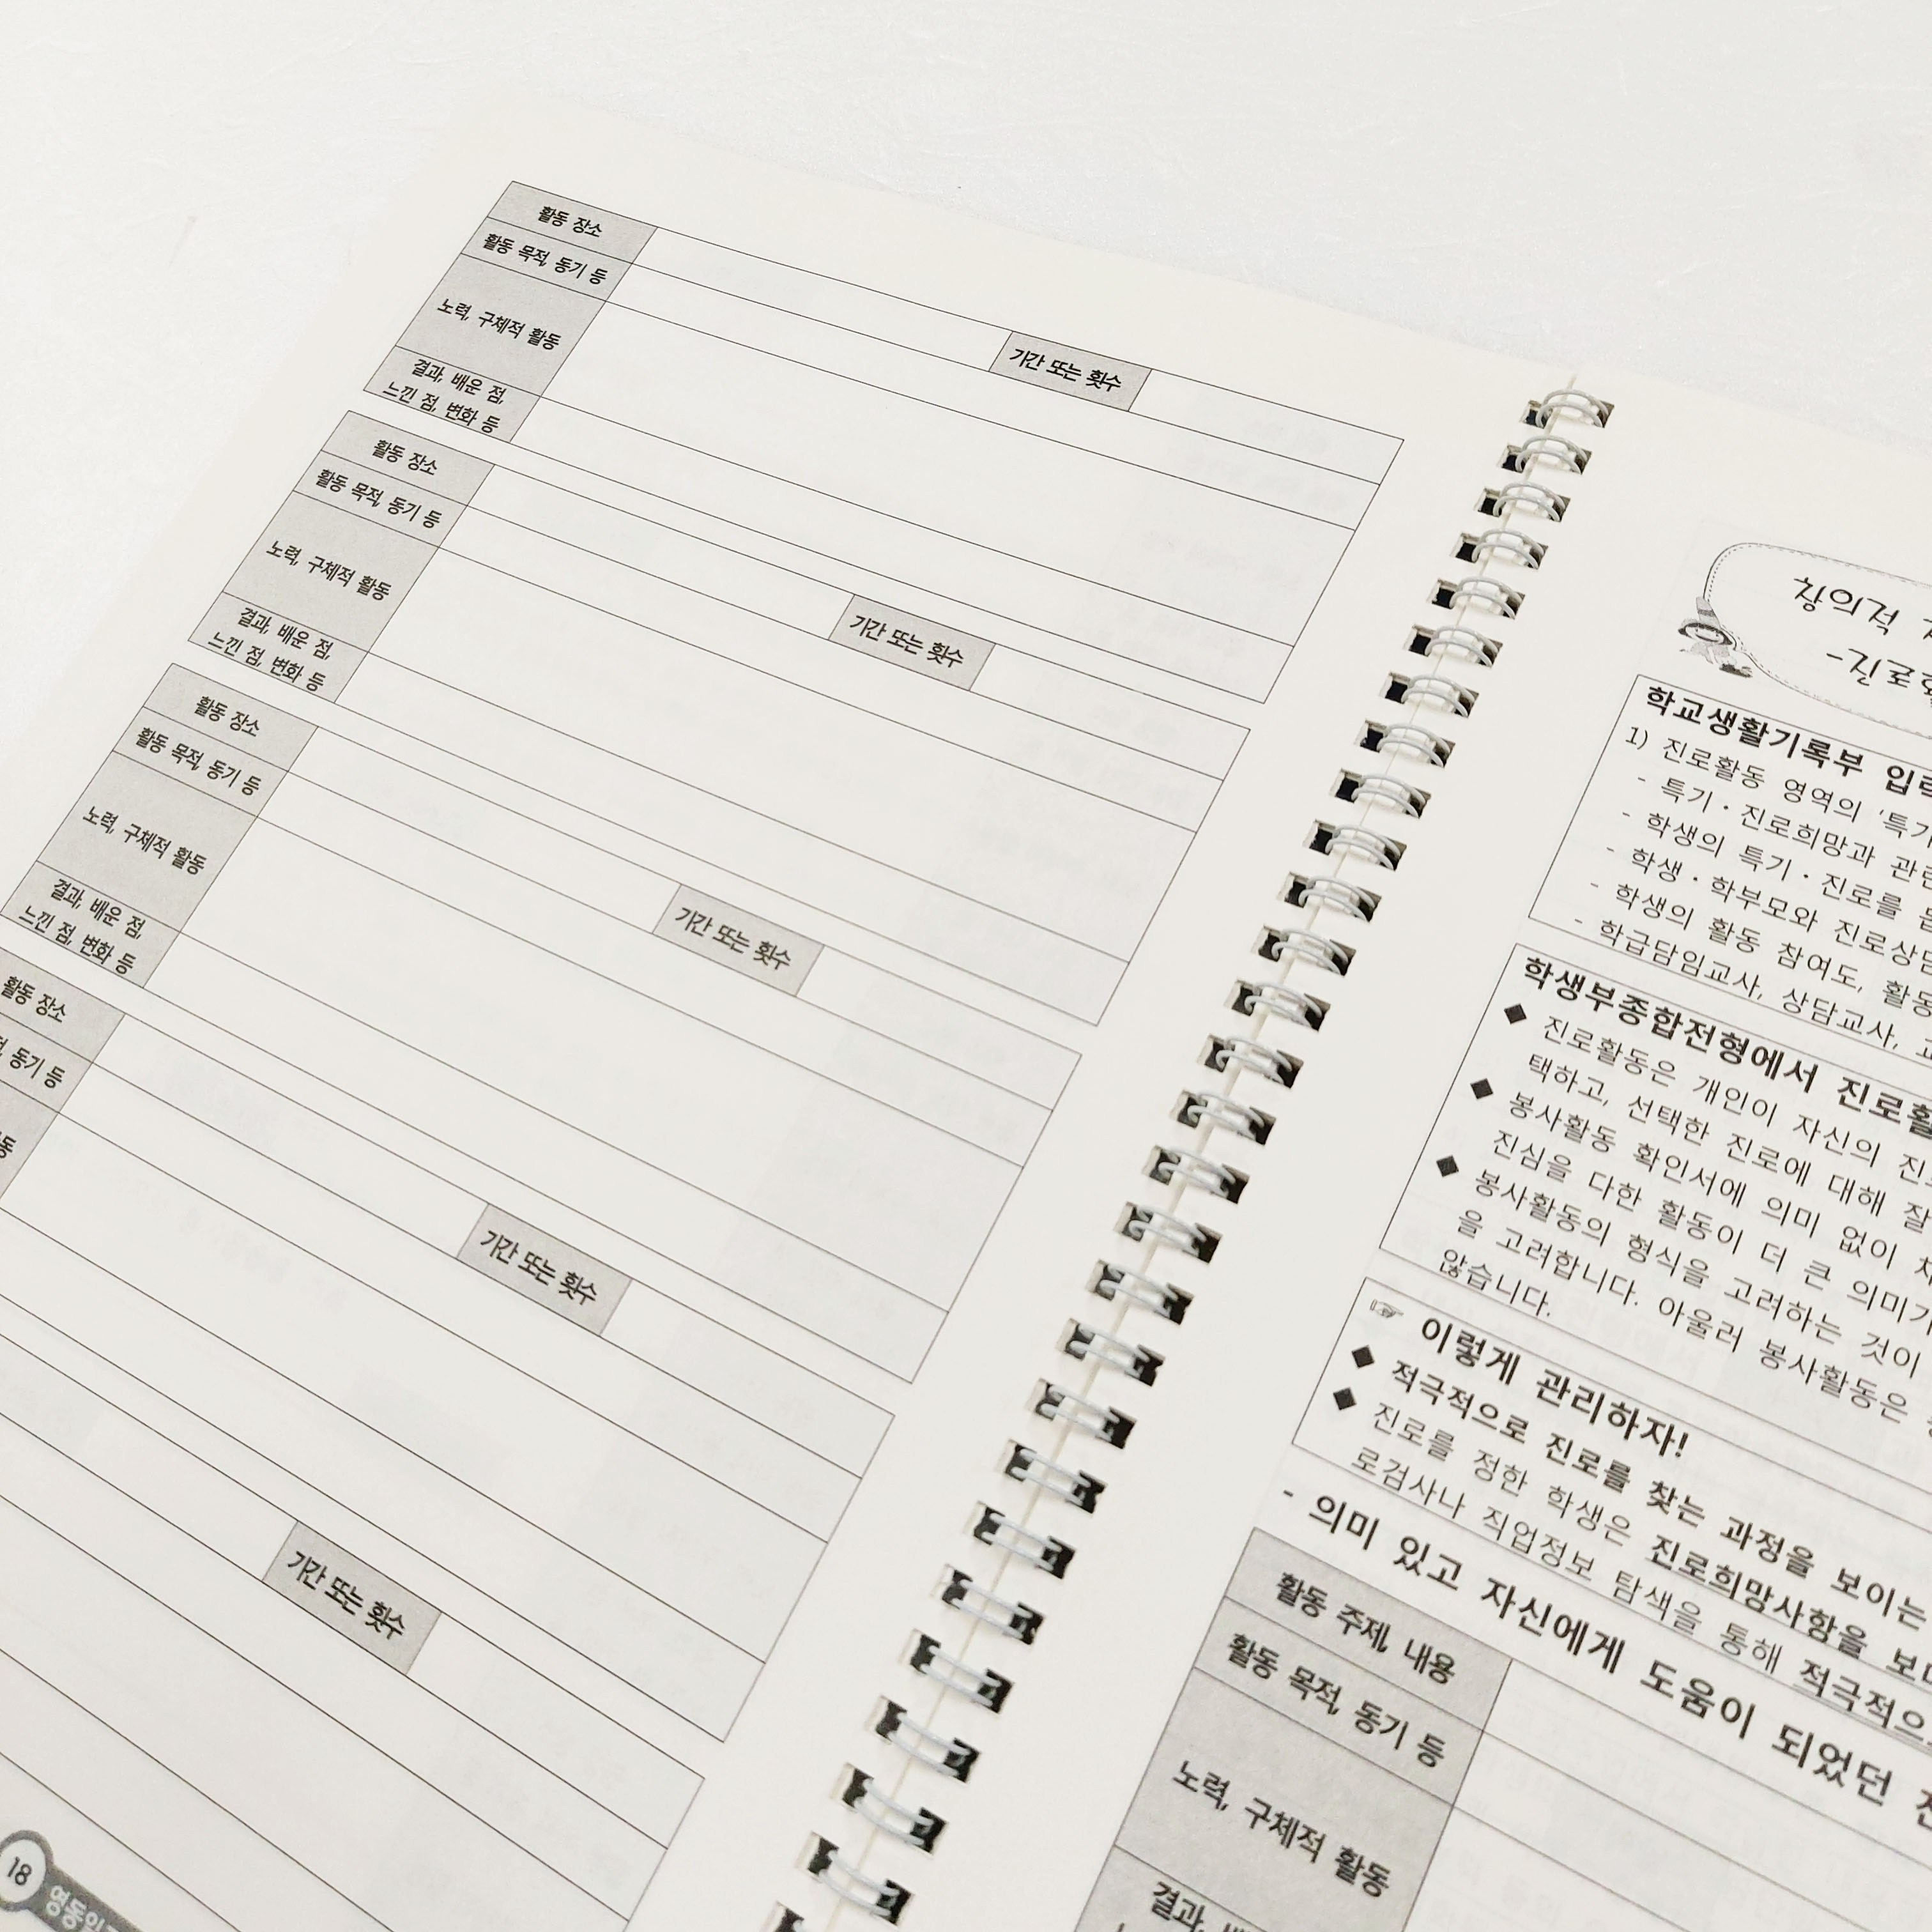 활동 장소
기간 또는 횟수
활동 목적, 동기 등
노력, 구체적 활동
결과, 배운 점,
느낀 점, 변화 등
활동 장소
기간 또는 횟수
활동 목적, 동기 등
노력, 구체적 활동
결과, 배운 점,
느낀 점, 변화 등
활동 장소
기간 또는 횟수
활동 목적, 동기 등
노력, 구체적 활동
결과, 배운 점,
느낀 점, 변화 등
활동 장소
기간 또는 횟수
동기 등
기간 또는 횟수
18
창의적
-진로
학교생활기록부 입력
1) 진로활동 영역의 '특기
- 특기·진로희망과 관련
- 학생의 특기·진로를
- 학생·학부모와 진로상담
- 학생의 활동 참여도, 활동
- 학급담임교사, 상담교사,
학생부종합전형에서 진로활
◆ 진로활동은 개인이 자신의 진로
택하고, 선택한 진로에 대해 잘
◆ 봉사활동 확인서에 의미 없이
진심을 다한 활동이 더 큰 의미가
◆ 봉사활동의 형식을 고려하는 것이
을 고려합니다. 아울러 봉사활동은
않습니다.
☞ 이렇게 관리하자!
◆ 적극적으로 진로를 찾는 과정을 보이는
◆ 진로를 정한 학생은 진로희망사항을
로검사나 직업정보 탐색을 통해 적극적으
- 의미 있고 자신에게 도움이 되었던
활동 주제, 내용
활동 목적, 동기 등
노력, 구체적 활동
결과,